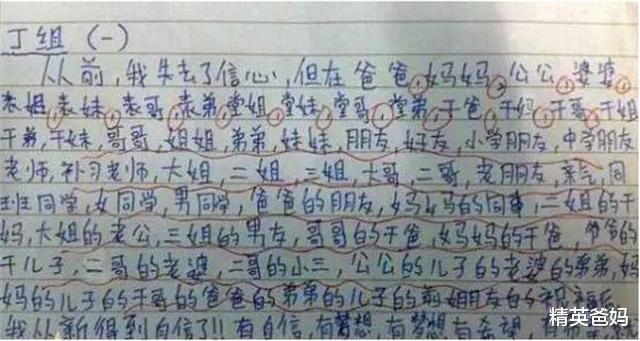 丁组（一）
从前，我失去了信心，但在爸爸，妈妈，公公，婆婆，
表姐，表妹，表哥，表弟，堂姐，堂妹，堂哥，堂弟，干爸，干妈，干哥，干姐
干弟，干妹，哥哥，姐姐，弟弟，妹妹，朋友，好友，小学朋友，中学朋友
老师，补习老师，大姐，二姐，三姐，大哥，二哥，老朋友，亲戚，同
班同学，女同学，男同学，爸爸的朋友，妈妈的同事，二姐的干
妈，大姐的老公，三姐的男友，哥哥的干爸，妈妈的干爸，爷爷的
干儿子，二哥的老婆，二哥的小三，公公的儿子的老婆的弟弟，
妈的儿子的干哥的爸爸的弟弟的儿子的前女朋友的祝福后，
我从新得到自信了!! 有自信，有梦想，有梦想有希望，有
精英爸妈